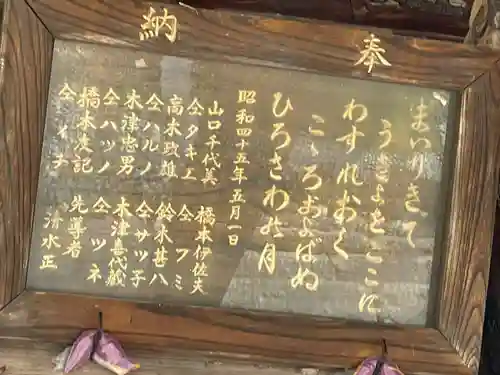 奉納
まいりきて
うきよをここに
わすれおく
こゝろおよばぬ
ひろさわの月
昭和四十五年五月一日
山口千代美
仝タキエ
高木政雄
仝ハルノ
木津忠男
仝ハツノ
橋本友記
仝イチ
橋本伊佐夫
仝フミ
鈴木甚八
仝サツ子
木津喜代蔵
仝ツネ
先導者
清水正